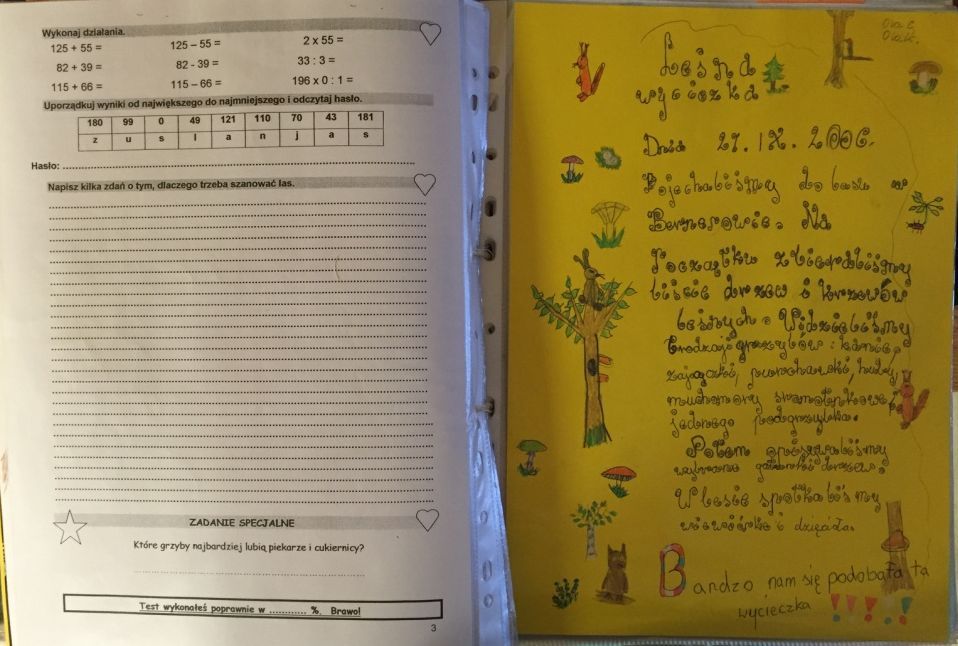 Wykonaj działania.
125 + 55 = 125 – 55 = 2 x 55 =
82 + 39 = 82 - 39 = 33 : 3 =
115 + 66 = 115 – 66 = 196 x 0 : 1 =
Uporządkuj wyniki od największego do najmniejszego i odczytaj hasło.
180 99 0 49 121 110 70 43 181
z u s l a n j a s
Hasło:
Napisz kilka zdań o tym, dlaczego trzeba szanować las.
ZADANIE SPECJALNE
Które grzyby najbardziej lubią piekarze i cukiernicy?
Test wykonałeś poprawnie w ............ %. Brawo!
3
Ola K.
Leśna
wycieczka
Dnia 27. IX. 2006.
Pojechaliśmy do lasu w
Bernerowie. Na
Początku zbieraliśmy
liście drzew i krzewów
leśnych. Widzieliśmy
6 rodzaji grzybów: kanie,
zajączki, purchawki, huby,
muchomory sromotnikowe,
jednego podgrzybka.
Potem opisywaliśmy
wybrane gatunki drzew.
W lesie spotkaliśmy
wiewiórkę i dzięcioła.
Bardzo nam się podobała ta
wycieczka !!!!!